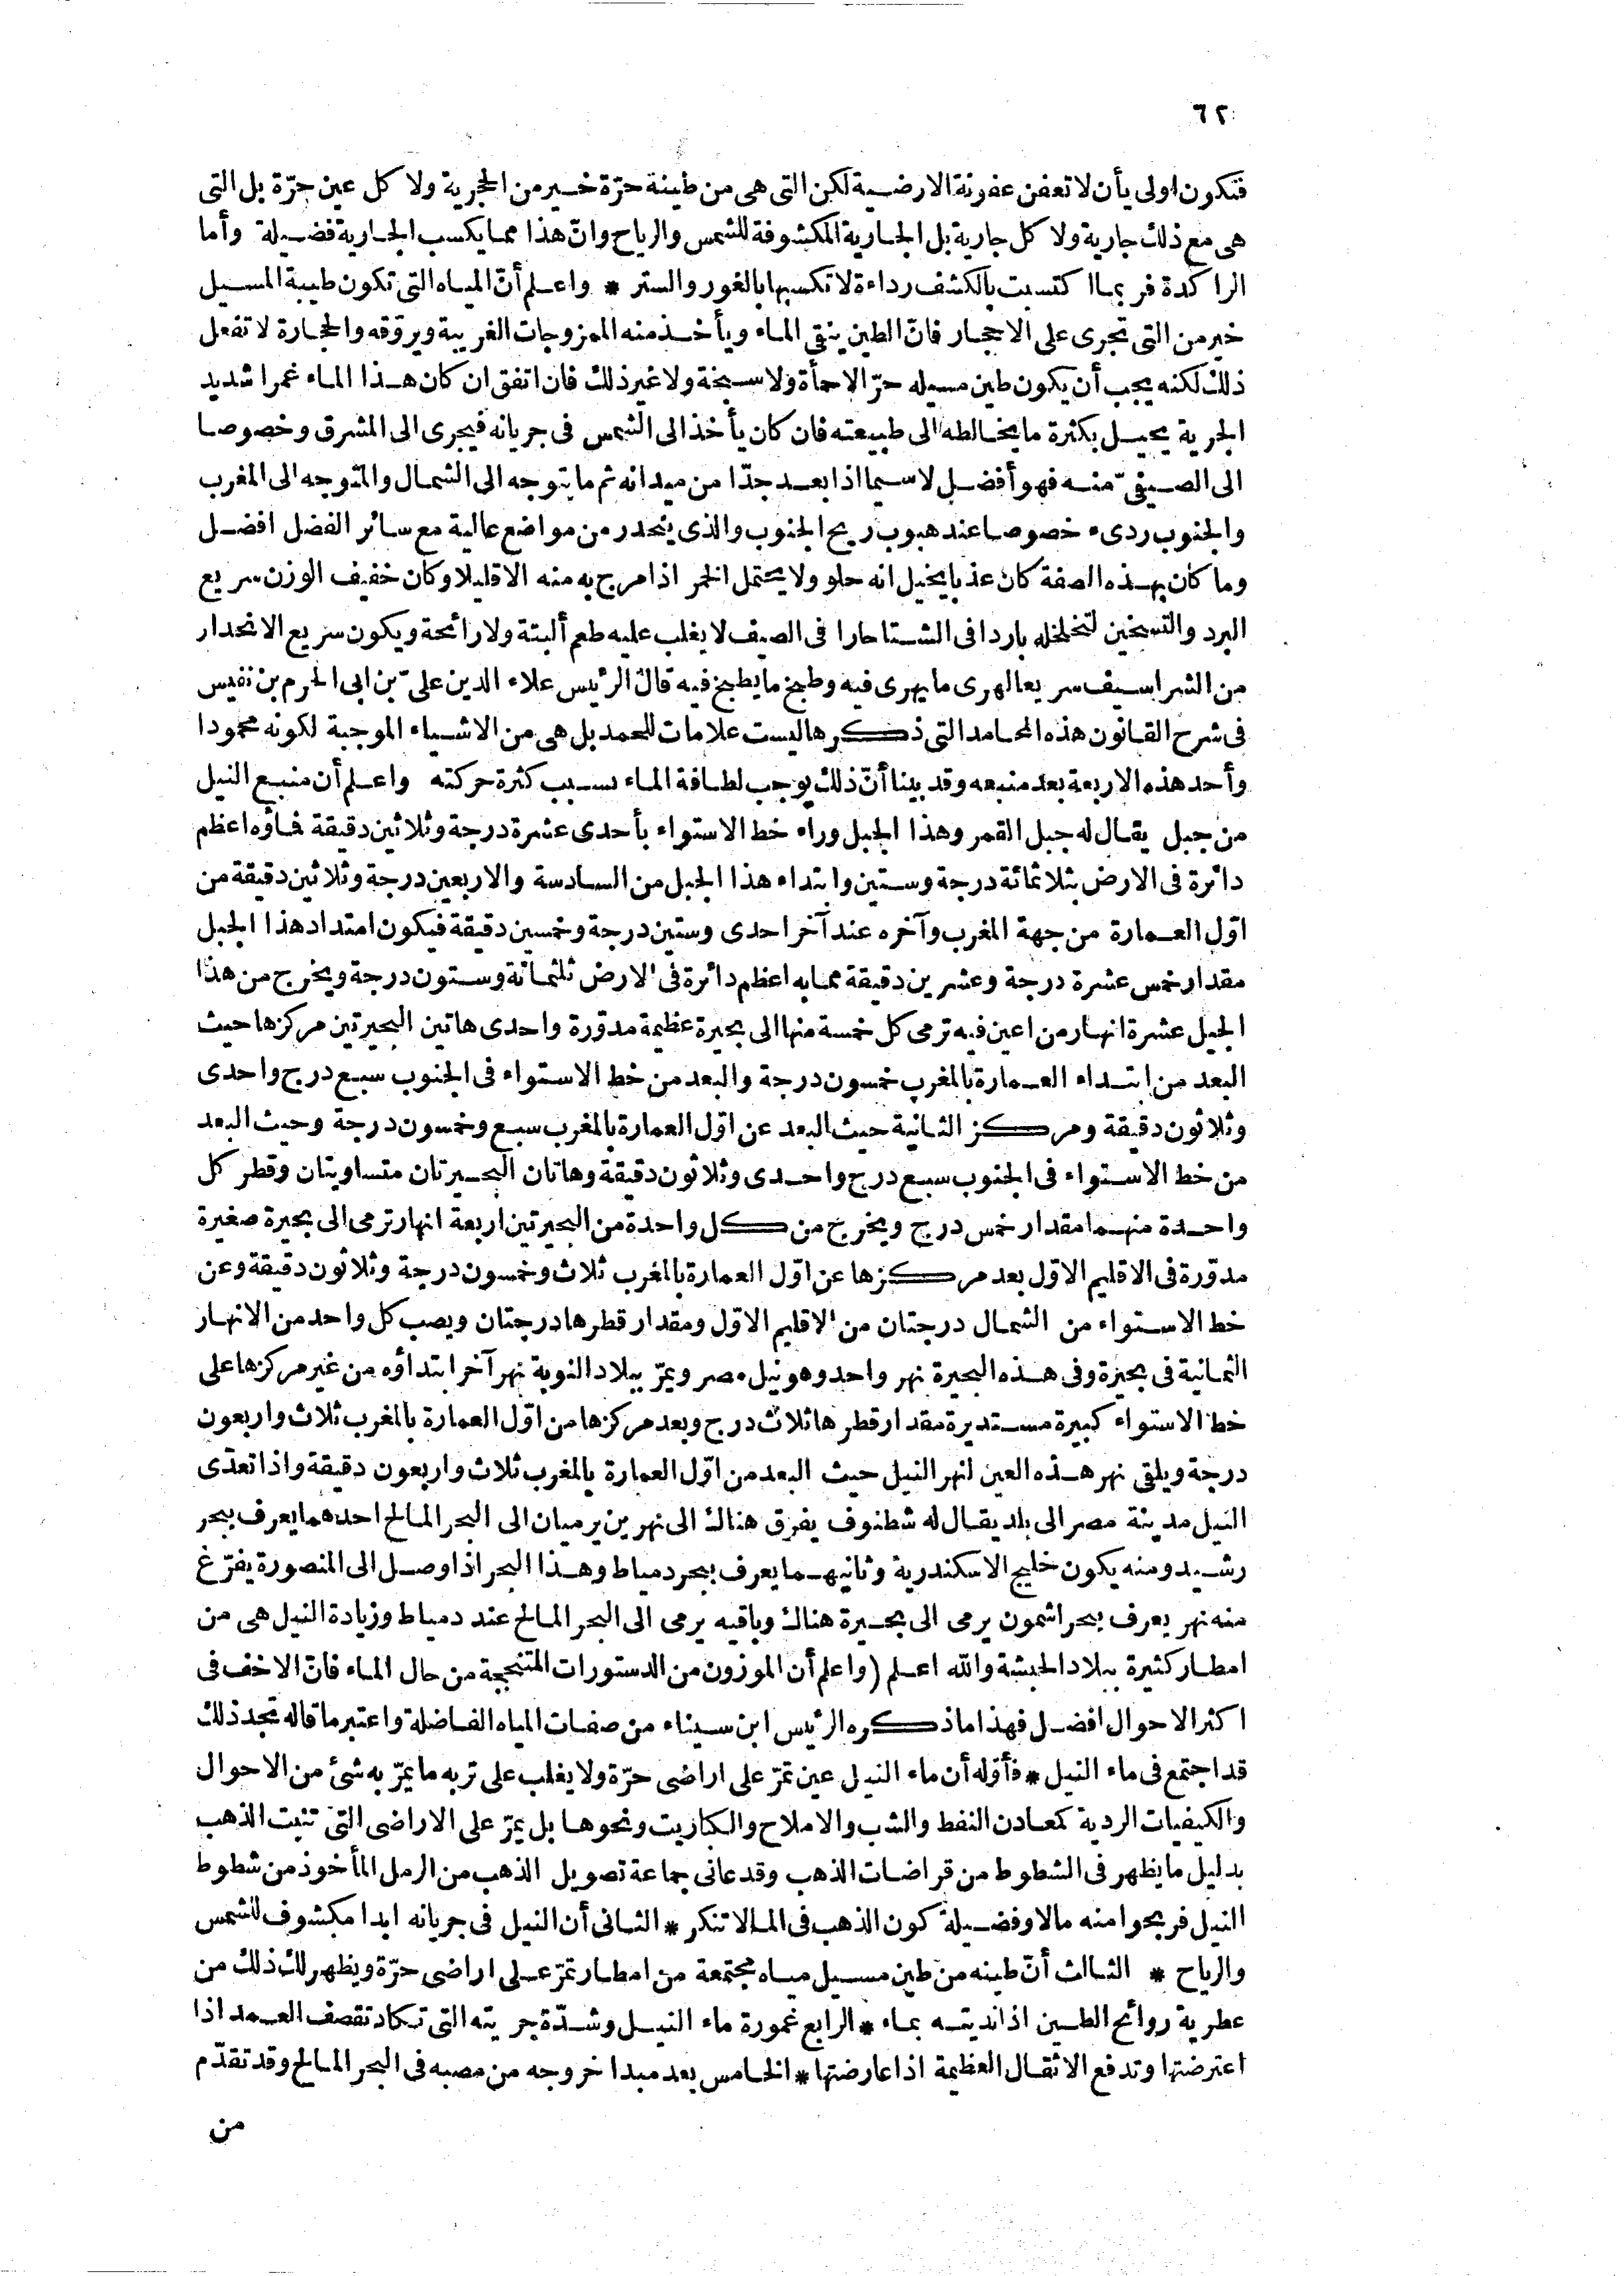 ٦٢
فتكون اولى بأن لا تعفن عفونة الارضية لكن التى هى من طينة حرّة خير من الحجرية ولا كل عين حرّة بل التى
هى مع ذلك جارية ولا كل جارية بل الجارية المكشوفة للشمس والرياح وانّ هذا مما يكسب الجارية فضيلة وأما
الراكدة فربما اكتسبت بالكشف رداءة لا تكسبها بالغور والستر * واعلم أنّ المياه التى تكون طيبة المسيل
خير من التى تجرى على الاحجار فانّ الطين ينقى الماء ويأخذ منه الممزوجات الغريبة ويروّقه والحجارة لا تفعل
ذلك لكنه يجب أن يكون طين مسيله حرّ الا حمأة ولا سبخة ولا غير ذلك فان اتفق ان كان هذا الماء غمرا شديد
الجرية يحيل بكثرة ما يخالطه الى طبيعته فان كان يأخذ الى الشمس فى جريانه فيجرى الى المشرق وخصوصا
الى الصيفىّ منه فهو أفضل لا سيما اذا بعد جدّا من مبدائه ثم ما يتوجه الى الشمال والمتوجه الى المغرب
والجنوب ردىء خصوصا عند هبوب ريح الجنوب والذى ينحدر من مواضع عالية مع سائر الفضل افضل
وما كان بهذه الصفة كان عذبا يخيل انه حلو ولا يحتمل الخمر اذا مرج به منه الا قليلا وكان خفيف الوزن سريع
البرد والتسخين لتخلخله باردا فى الشتا حارا فى الصيف لا يغلب عليه طعم ألبتة ولا رائحة ويكون سريع الانحدار
من الشراسيف سريعا لهرى ما يهرى فيه وطبخ ما يطبخ فيه قال الرئيس علاء الدين علىّ بن ابى الحرم بن نفيس
فى شرح القانون هذه المحامد التى ذكرها ليست علامات للحمد بل هى من الاشياء الموجبة لكونه محمودا
وأحد هذه الاربعة بعد منبعه وقد بينا أنّ ذلك يوجب لطافة الماء بسبب كثرة حركته واعلم أن منبع النيل
من جبل يقال له جبل القمر وهذا الجبل وراء خط الاستواء بأحدى عشرة درجة وثلاثين دقيقة فاؤه اعظم
دائرة فى الارض بثلاثمائة درجة وستين وابتداء هذا الجبل من السادسة والاربعين درجة وثلاثين دقيقة من
اوّل العمارة من جهة المغرب وآخره عند آخر احدى وستين درجة وخمسين دقيقة فيكون امتداد هذا الجبل
مقدار خمس عشرة درجة وعشرين دقيقة مما به اعظم دائرة فى الارض ثلثمائة وستون درجة ويخرج من هذا
الجبل عشرة انهار من اعين فيه ترمى كل خمسة منها الى بحيرة عظيمة مدوّرة واحدى هاتين البحيرتين مركزها حيث
البعد من ابتداء العمارة بالمغرب خمسون درجة والبعد من خط الاستواء فى الجنوب سبع درج واحدى
وثلاثون دقيقة ومركز الثانية حيث البعد عن اوّل العمارة بالمغرب سبع وخمسون درجة وحيث البعد
من خط الاستواء فى الجنوب سبع درج واحدى وثلاثون دقيقة وهاتان البحيرتان متساويتان وقطر كل
واحدة منهما مقدار خمس درج ويخرج من كل واحدة من البحيرتين اربعة انهار ترمى الى بحيرة صغيرة
مدوّرة فى الاقليم الاوّل بعد مركزها عن اوّل العمارة بالمغرب ثلاث وخمسون درجة وثلاثون دقيقة وعن
خط الاستواء من الشمال درجتان من الاقليم الاوّل ومقدار قطرها درجتان ويصب كل واحد من الانهار
الثمانية فى بحيرة وفى هذه البحيرة نهر واحد وهو نيل مصر ويمرّ ببلاد النوبة نهر آخر ابتداؤه من غير مركزها على
خط الاستواء كبيرة مستديرة مقدار قطرها ثلاث درج وبعد مركزها من اوّل العمارة بالمغرب ثلاث واربعون
درجة ويلقى نهر هذه العين لنهر النيل حيث البعد من اوّل العمارة بالمغرب ثلاث واربعون دقيقة واذا تعدّى
النيل مدينة مصر الى بلد يقال له شطنوف يفرق هناك الى نهرين يرميان الى البحر المالح احدهما يعرف ببحر
رشيد ومنه يكون خليج الاسكندرية وثانيهما يعرف ببحر دمياط وهذا البحر اذا وصل الى المنصورة يفرّغ
منه نهر يعرف ببحر اشمون يرمى الى بحيرة هناك وباقيه يرمى الى البحر المالح عند دمياط وزيادة النيل هى من
امطار كثيرة ببلاد الحبشة والله اعلم (واعلم أن الموزون من الدستورات المتنجحة من حال الماء فانّ الاخف فى
اكثر الاحوال افضل فهذا ما ذكره الرئيس ابن سيناء من صفات المياه الفاضلة واعتبر ما قاله تجد ذلك
قد اجتمع فى ماء النيل * فأوّله أن ماء النيل عين تمرّ على اراضى حرّة ولا يغلب على تربه ما يمرّ به شئ من الاحوال
والكيفيات الردية كمعادن النفط والشب والاملاح والكباريت ونحوها بل يمرّ على الاراضى التى تنبت الذهب
بدليل ما يظهر فى الشطوط من قراضات الذهب وقد عانى جماعة تصويل الذهب من الرمل المأخوذ من شطوط
النيل فربحوا منه مالا وفضيلة كون الذهب فى الما لا تنكر * الثانى أن النيل فى جريانه ابدا مكشوف للشمس
والرياح * الثالث أنّ طينه من طين مسيل مياه مجتمعة من امطار تمرّ على اراضى حرّة ويظهر لك ذلك من
عطرية روائح الطين اذا نديته بماء * الرابع غمورة ماء النيل وشدّة جريته التى تكاد تقصف العمد اذا
اعترضتها وتدفع الاثقال العظيمة اذا عارضتها * الخامس بعد مبدا خروجه من مصبه فى البحر المالح وقد تقدّم
من